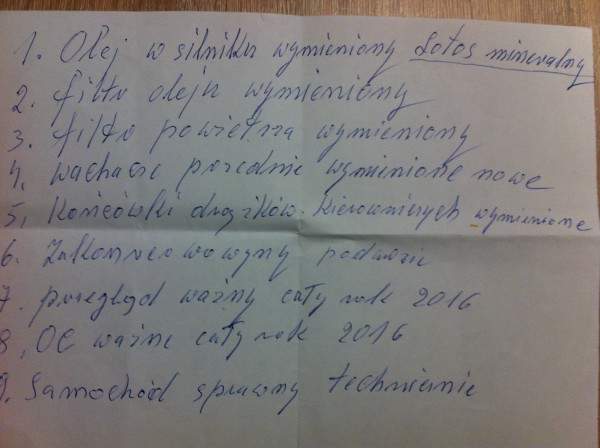 1. Olej w silniku wymieniony Lotos mineralny
2. filtr oleju wymieniony
3. filtr powietrza wymieniony
4. wachacze przednie wymienione nowe
5. Końcówki drążków kierowniczych wymienione
6. Zakonserwowany podwozie
7. przegląd ważny cały rok 2016
8. OC ważne cały rok 2016
9. Samochód sprawny technicznie